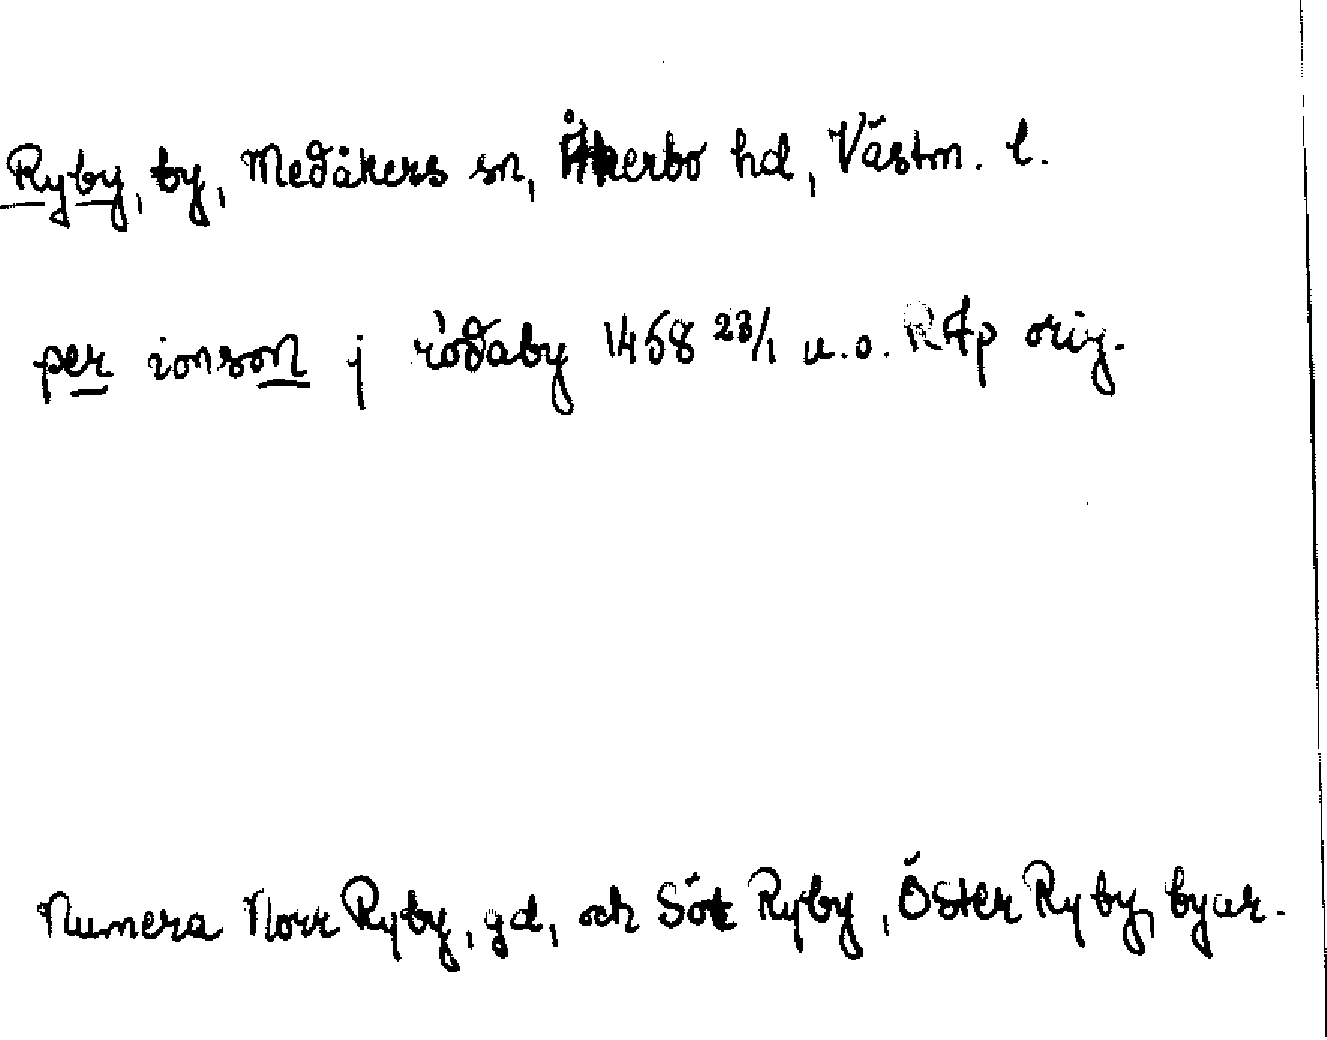 Ryby, by, Medåkers sn, Åkerbo hd, Västm. l.
per ionson j rödaby 1458 23/1 u.o. RAp orig.
Numera Norr Ryby, gd, och Söt Ryby, Öster Ryby, byar.